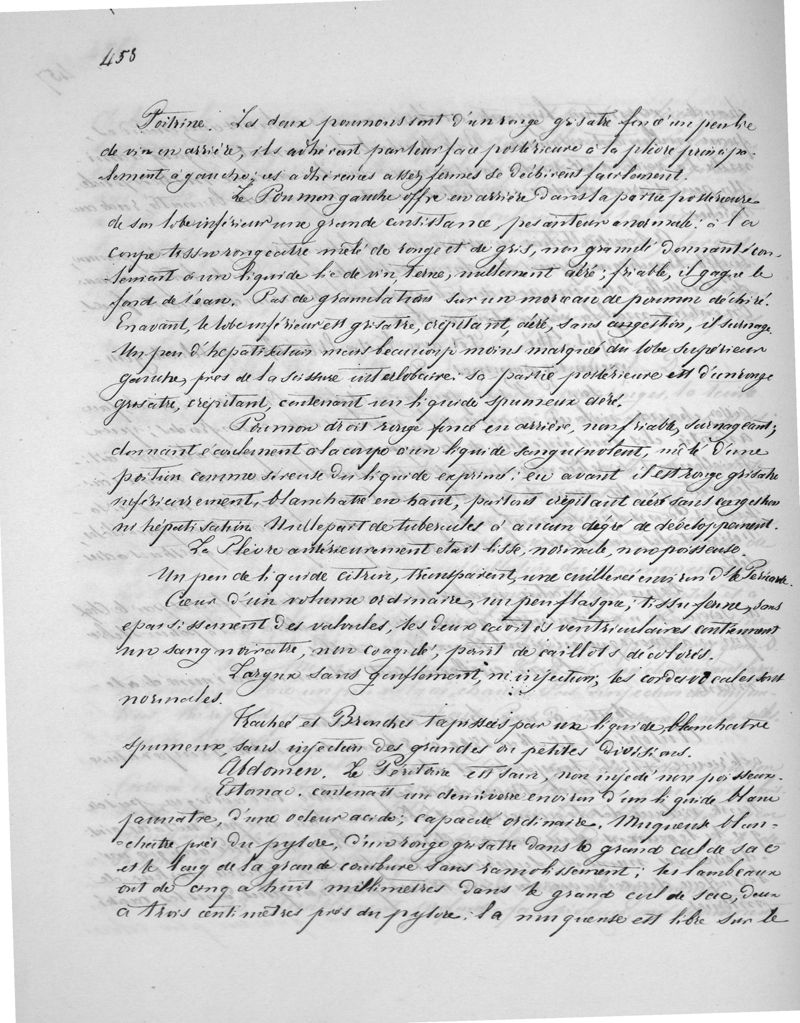 458
Poitrine. Les deux poumons sont d'un rouge grisatre foncé un peu lie
de vin en arrière, ils adhérent par leur face postérieure à la plèvre principa-
lement à gauche; ces adhérences assez fermes se déchirent facilement.
Le Poumon gauche offre en arrière dans la partie postérieure
de son lobe inférieur une grande consistance, pesanteur anormale: à la
coupe tissu rougeatre mêlé de rouge et de gris, non granulé donnant écou-
lement à un liquide lie de vin, terne, nullement aéré; friable, il gagne le
fond de l'eau. Pas de granulations sur un morceau de poumon déchiré.
En avant, le lobe inférieur est grisatre, crépitant, aéré, sans congestion, il surnage.
Un peu d'hépatisation mais beaucoup moins marquée du lobe supérieur
gauche, près de la scissure interlobaire: sa partie postérieure est d'un rouge
grisatre, crépitant, contenant un liquide spumeux aéré.
Poumon droit rouge foncé en arrière, non friable, surnageant;
donnant écoulement à la coupe à un liquide sanguinolent, mêlé d'une
portion comme séreuse du liquide exprimé: en avant il est rouge grisatre
inférieurement, blanchatre en haut, partout crépitant aéré sans congestion
ni hépatisation. Nulle part de tubercules à aucun dégré de développement.
La Plèvre antérieurement était lisse, normale, non poisseuse.
Un peu de liquide citrin, transparent, une cuillereé environ d.s le Péricarde.
Cœur d'un volume ordinaire, un peu flasque; tissu ferme, sans
epaississement des valvules, les deux cavités ventriculaires contiennent
un sang noiratre, non coagulé, point de caillots décolorés.
Larynx sans gonflement, ni injection; les cordes vocales sont
normales.
Trachée et Bronches tapissées par un liquide blanchatre
spumeux, sans injection des grandes ou petites divisions.
Abdomen. Le Péritoine est sain, non injecté non poisseux.
Estomac. contenait un demi verre environ d'un liquide blanc
jaunatre, d'une odeur acide; capacité ordinaire. Muqueuse blan-
-châtre près du pylore, d'un rouge grisatre dans le grand cul de sac
et le long de la grande courbure sans ramolissement; les lambeaux
ont de cinq à huit millimètres dans le grand cul de sac, deux
à trois centimètres près du pylore: la muqueuse est libre sur le